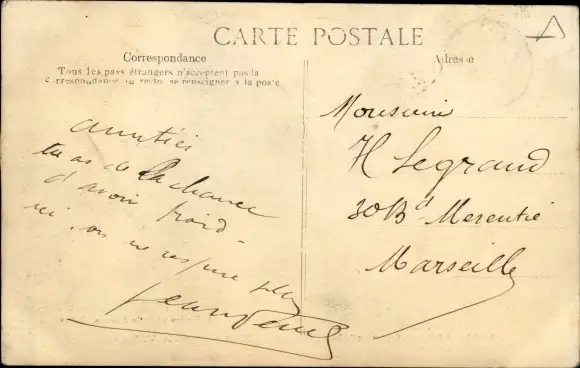 CARTE POSTALE
Correspondance
Tous les pays étrangers n'acceptent pas la
correspondance au recto se renseigner à la poste
Adresse
amitiés
tu as de la chance
d'avoir froid -
ici, on ne respire plus
Jean Paul
Monsieur
H Legrand
30 Bd
Marseille